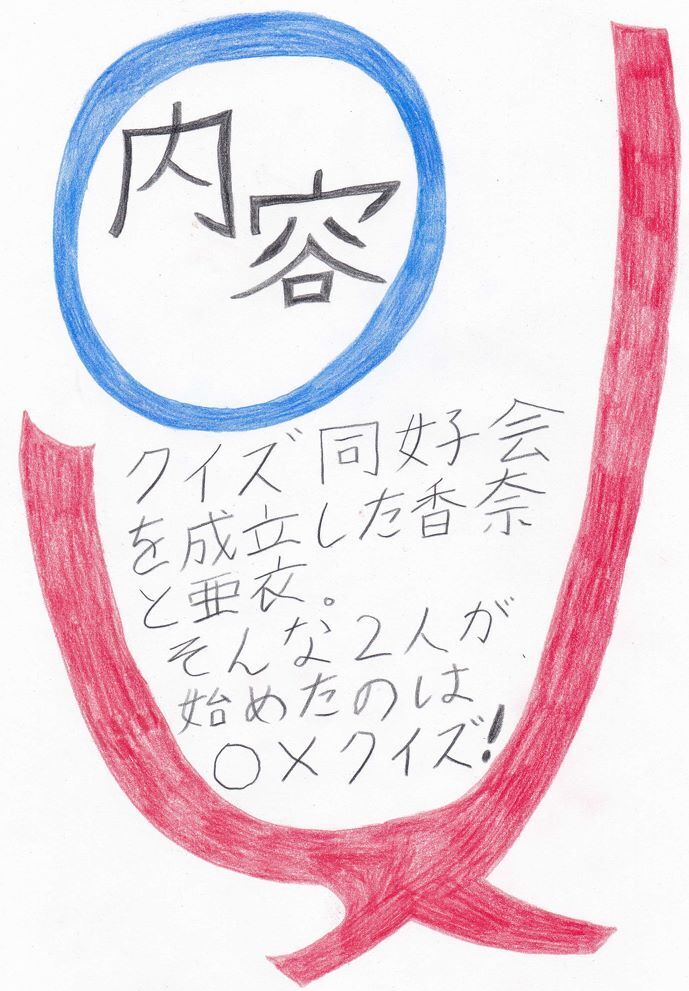 内容
クイズ同好会
を成立した香奈
と亜衣。
そんな2人が
始めたのは
○×クイズ!